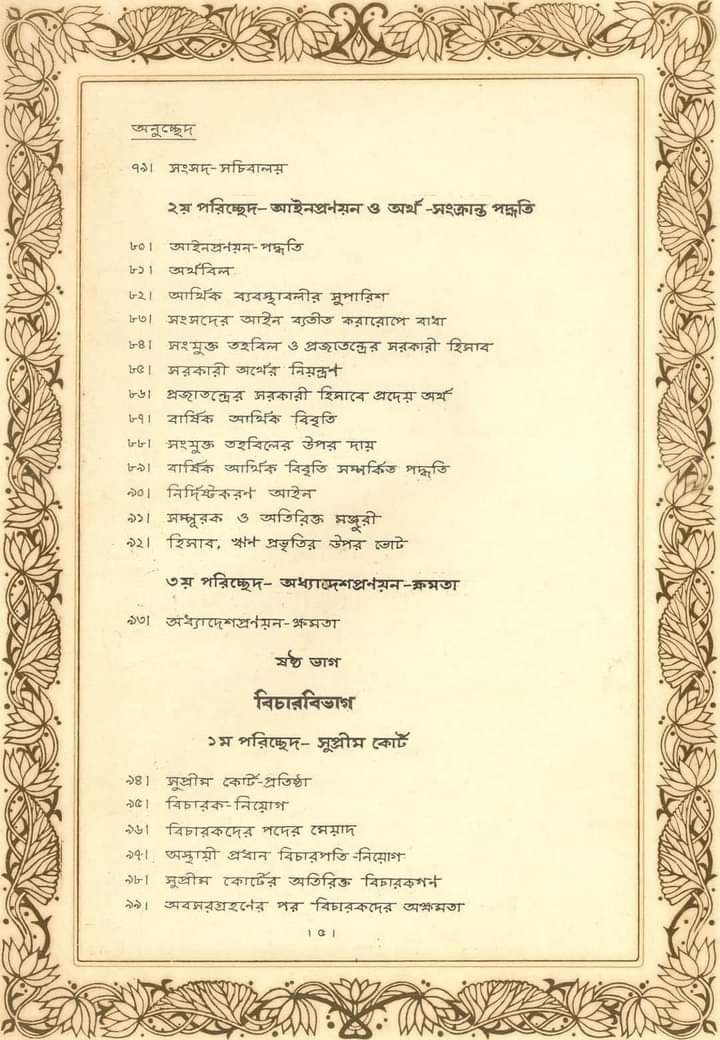 অনুচ্ছেদ
৭৯। সংসদ-সচিবালয়
২য় পরিচ্ছেদ- আইনপ্রণয়ন ও অর্থ -সংক্রান্ত পদ্ধতি
৮০। আইনপ্রণয়ন-পদ্ধতি
৮১। অর্থবিল
৮২। আর্থিক ব্যবস্থাবলীর সুপারিশ
৮৩। সংসদের আইন ব্যতীত করারোপে বাধা
৮৪। সংযুক্ত তহবিল ও প্রজাতন্ত্রের সরকারী হিসাব
৮৫। সরকারী অর্থের নিয়ন্ত্রণ
৮৬। প্রজাতন্ত্রের সরকারী হিসাবে প্রদেয় অর্থ
৮৭। বার্ষিক আর্থিক বিবৃতি
৮৮। সংযুক্ত তহবিলের উপর দায়
৮৯। বার্ষিক আর্থিক বিবৃতি সম্পর্কিত পদ্ধতি
৯০। নির্দিষ্টকরণ আইন
৯১। সম্পূরক ও অতিরিক্ত মঞ্জুরী
৯২। হিসাব, ঋণ প্রভৃতির উপর ভোট
৩য় পরিচ্ছেদ- অধ্যাদেশপ্রণয়ন-ক্ষমতা
৯৩। অধ্যাদেশপ্রণয়ন-ক্ষমতা
ষষ্ঠ ভাগ
বিচারবিভাগ
১ম পরিচ্ছেদ- সুপ্রীম কোর্ট
৯৪। সুপ্রীম কোর্ট-প্রতিষ্ঠা
৯৫। বিচারক-নিয়োগ
৯৬। বিচারকদের পদের মেয়াদ
৯৭। অস্থায়ী প্রধান বিচারপতি -নিয়োগ
৯৮। সুপ্রীম কোর্টের অতিরিক্ত বিচারকগণ
৯৯। অবসরগ্রহণের পর বিচারকদের অক্ষমতা
। ৫ ।